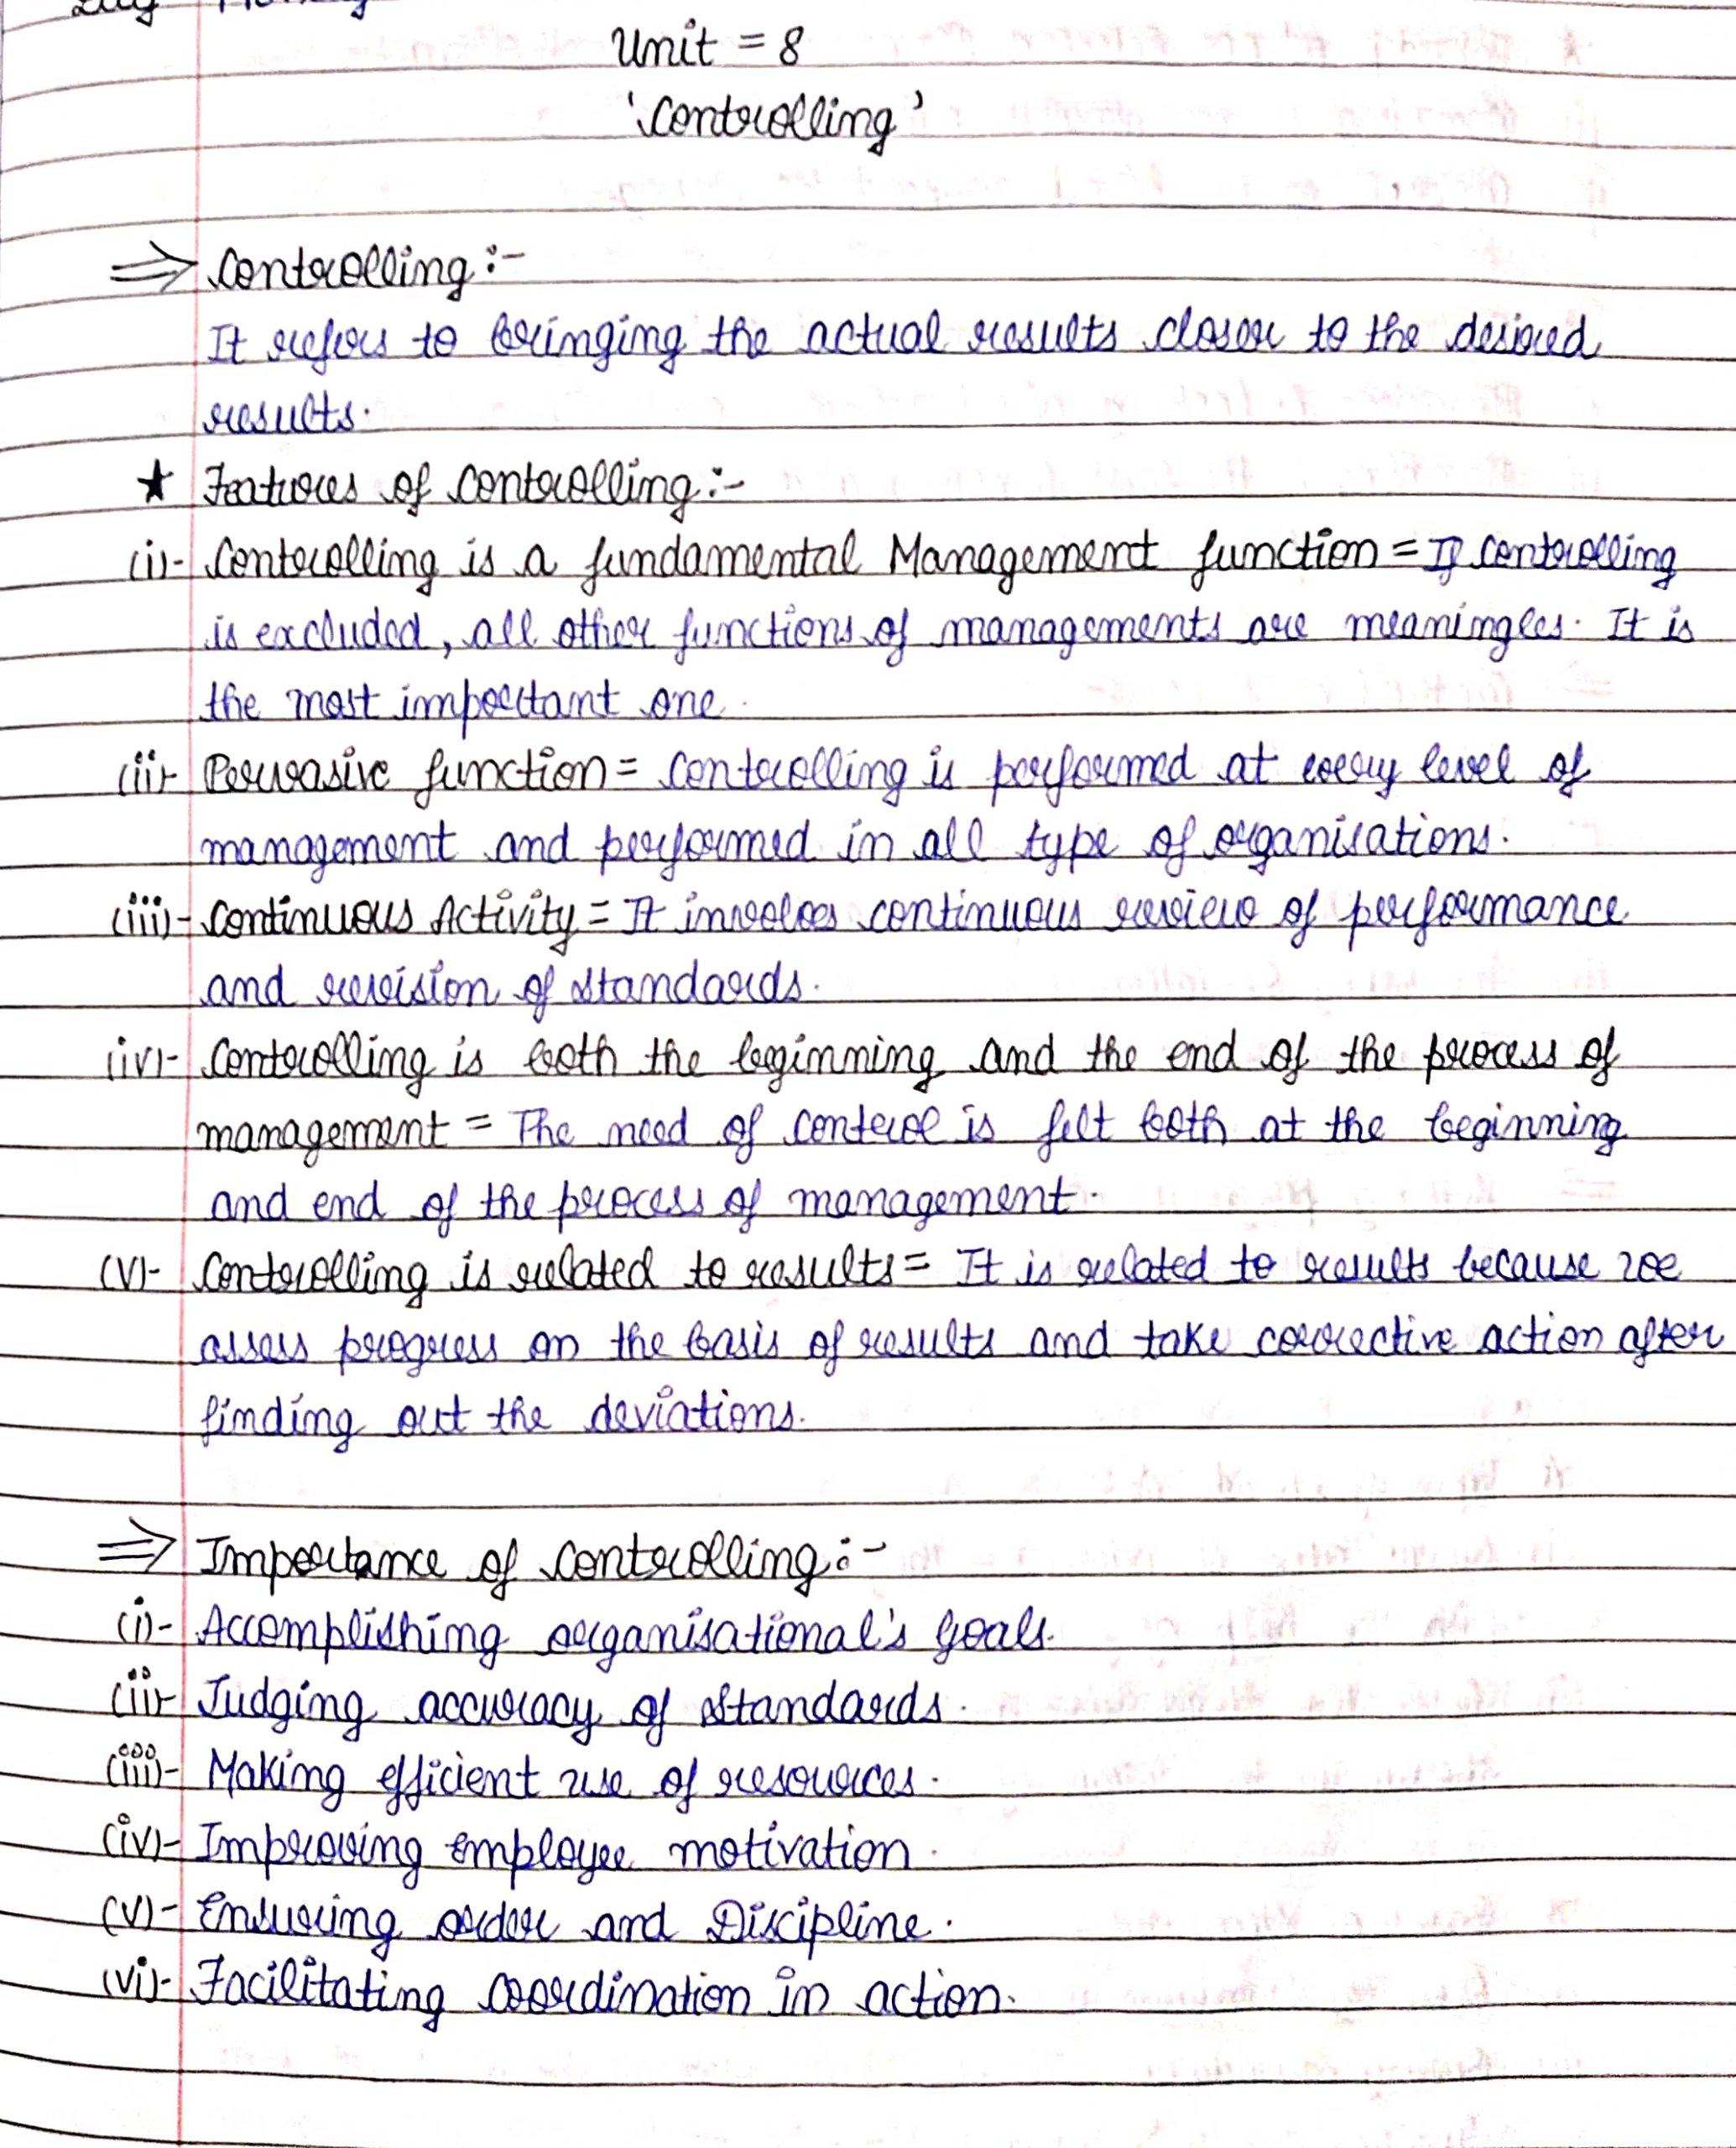 Unit = 8
'Controlling'
⇒ Controlling :-
It refers to bringing the actual results closer to the desired
results.
★ Features of controlling :-
(i)- Controlling is a fundamental Management function = If controlling
is excluded, all other functions of managements are meaningles. It is
the most important one.
(ii)- Pervasive function = controlling is performed at every level of
management and performed in all type of organisations.
(iii)- Continuous Activity = It involves continuous review of performance
and revision of standards.
(iv)- Controlling is both the beginning and the end of the process of
management = The need of control is felt both at the beginning
and end of the process of management.
(v)- Controlling is related to results = It is related to results because we
assess progress on the basis of results and take corrective action after
finding out the deviations.
⇒ Importance of controlling :-
(i)- Accomplishing organisational's goals.
(ii)- Judging accuracy of standards.
(iii)- Making efficient use of resources.
(iv)- Improving employee motivation.
(v)- Ensuring order and Discipline.
(vi)- Facilitating coordination in action.